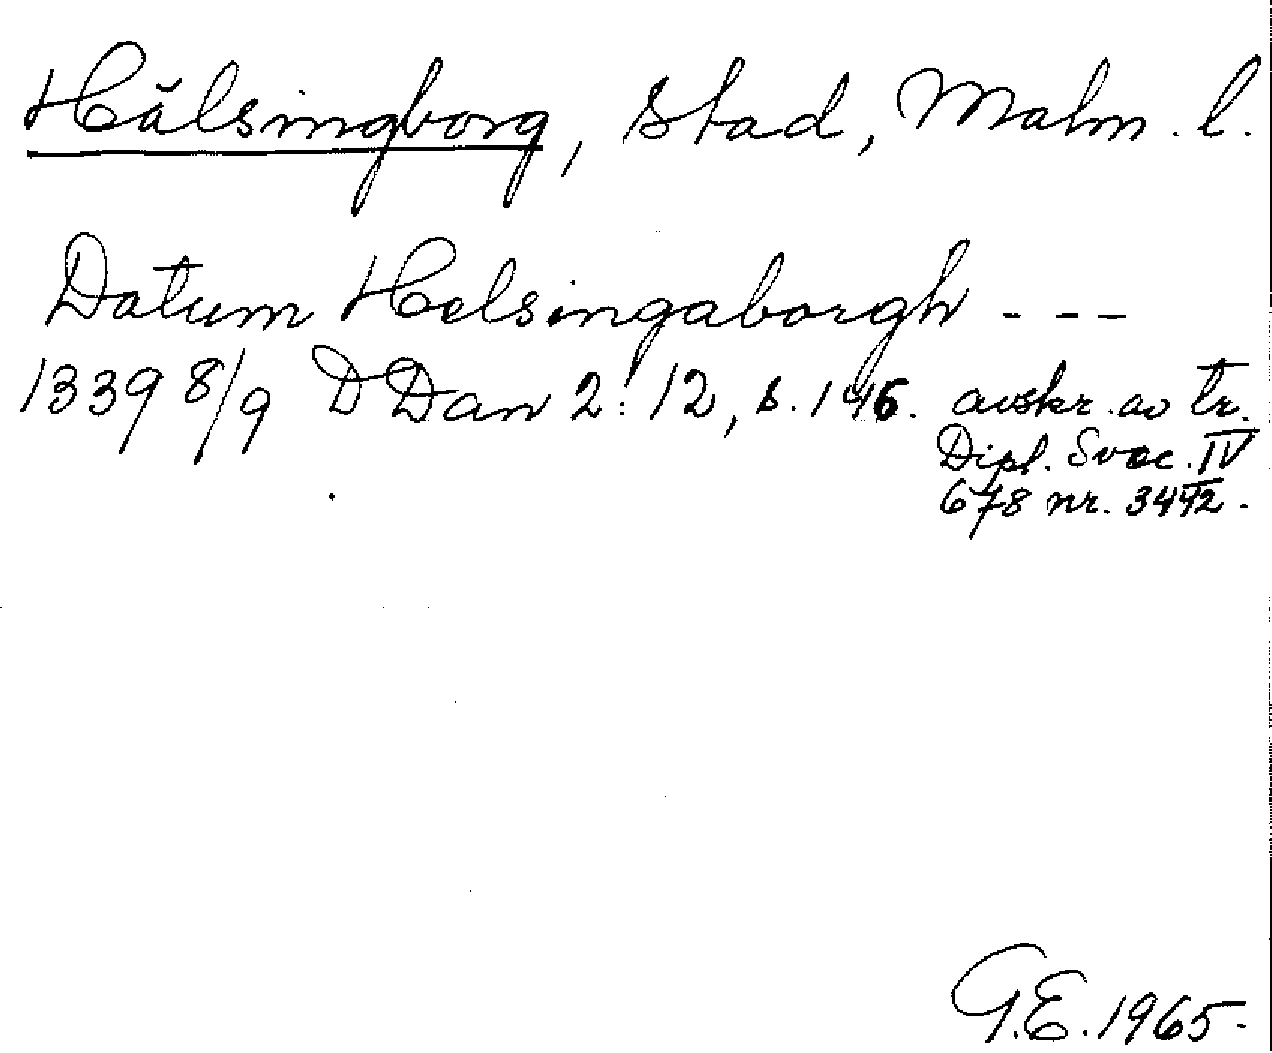 Hälsingborg, stad, Malm. l.
Datum Helsingaborgh ---
1339 8/9 D Dan 2:12, s. 146. avskr. av tr.
Dipl. Svec. IV
678 nr. 3492.
G.E. 1965.